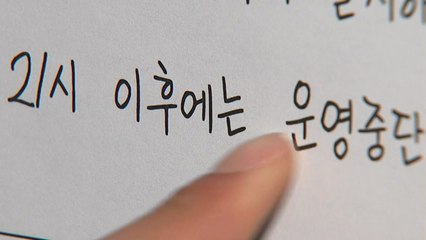 21시 이후에는 운영중단